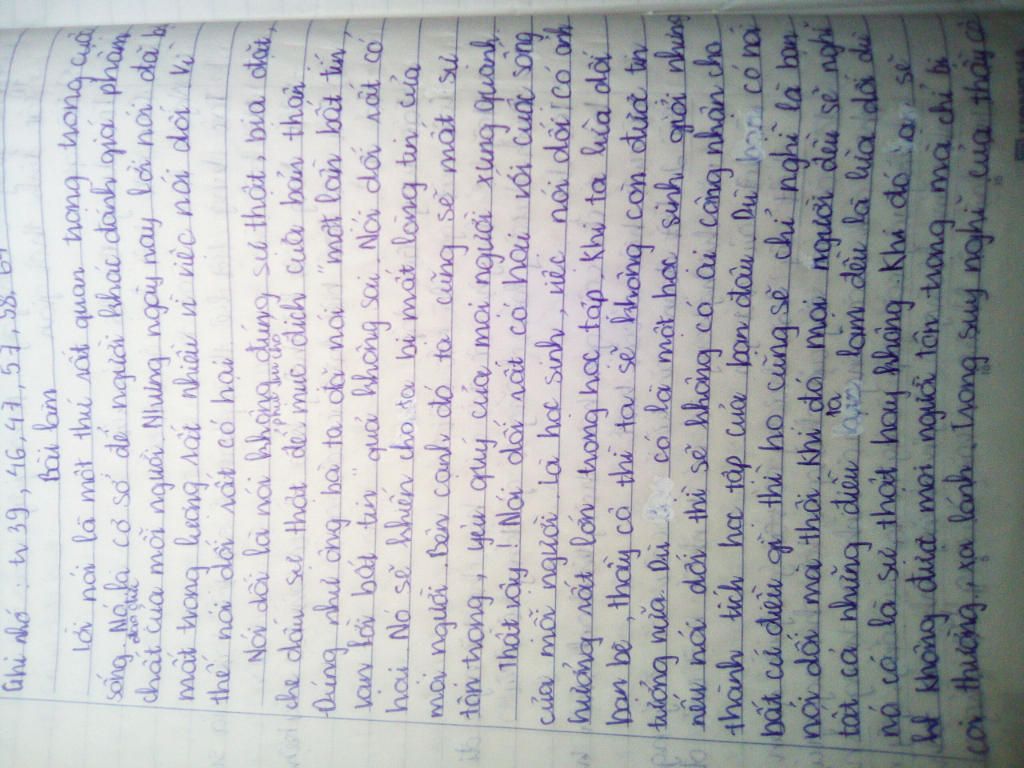 Ghi nhớ: tr 39, 46, 47, 57, 58, 64
Bài làm
Lời nói là một thứ rất quan trọng trong cuộc
sống. Nó là cơ sở để người khác đánh giá phẩm
chất của mỗi người. Nhưng ngày nay lời nói đã bị
mất trọng lượng rất nhiều vì việc nói dối. Vì
thế nói dối rất có hại.
Nói dối là nói không đúng sự thật, bịa đặt,
che dấu sự thật để phục vụ cho mục đích của bản thân.
Đúng như ông bà ta đã nói "một lần bất tín,
vạn lần bất tin" quả không sai. Nói dối rất có
hại. Nó sẽ khiến cho ta bị mất lòng tin của
mọi người. Bên cạnh đó ta cũng sẽ mất sự
tôn trọng, yêu quý của mọi người xung quanh.
Thật vậy! Nói dối rất có hại với cuộc sống
của mỗi người. Là học sinh, việc nói dối có ảnh
hưởng rất lớn trong học tập. Khi ta lừa dối
bạn bè, thầy cô thì ta sẽ không còn được tin
tưởng nữa. Dù có là một học sinh giỏi nhưng
nếu nói dối thì sẽ không có ai công nhận cho
thành tích học tập của bạn đâu. Dù bạn có nói
bất cứ điều gì thì họ cũng sẽ chỉ nghĩ là bạn
nói dối mà thôi. Khi đó mọi người đều sẽ nghĩ
tất cả những điều ta làm đều là lừa dối dù
nó có là sự thật hay không. Khi đó bạn sẽ
không được mọi người tôn trọng mà chỉ bị
coi thường, xa lánh. Trong suy nghĩ của thầy cô